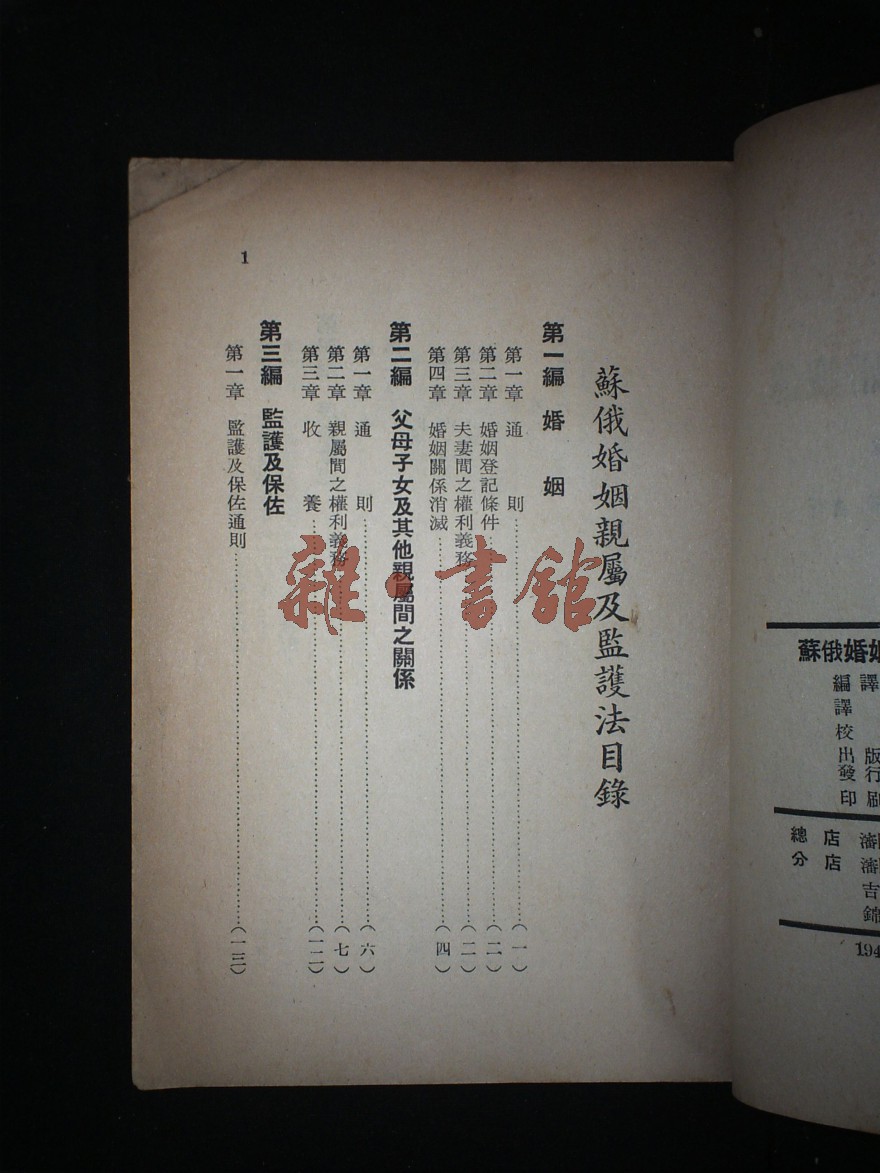 蘇俄婚姻親屬及監護法目錄
第一編 婚 姻
第一章 通 則……(一)
第二章 婚姻登記條件……(二)
第三章 夫妻間之權利義務……(二)
第四章 婚姻關係消滅……(四)
第二編 父母子女及其他親屬間之關係
第一章 通 則……(六)
第二章 親屬間之權利義務……(七)
第三章 收 養……(一二)
第三編 監護及保佐
第一章 監護及保佐通則……(一三)
1
雜·書館
蘇俄婚姻
編譯
譯
校
出版
發行
印刷
總店 瀋
分店 瀋
吉
錦
194